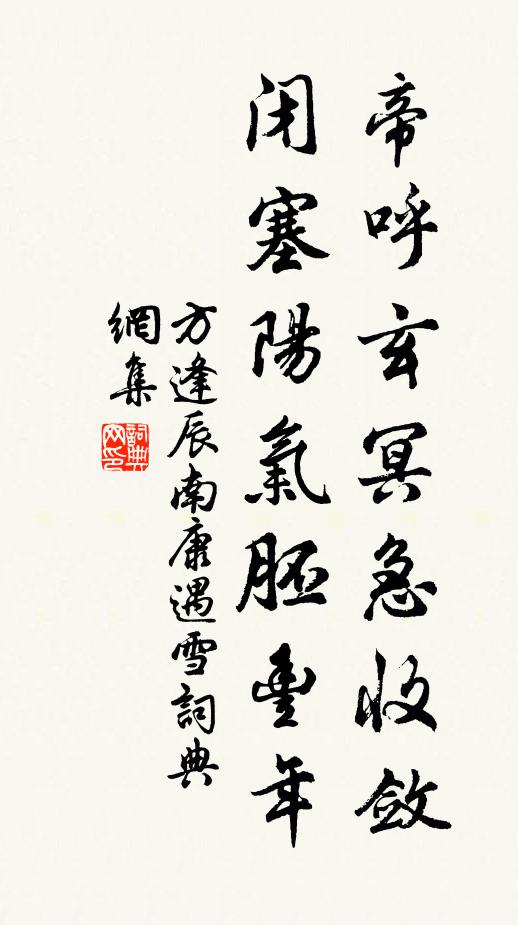 帝呼玄冥急收斂
闭塞陽氣胚豊年
方逢辰南康遇雪詞典
網集
詞典
网印